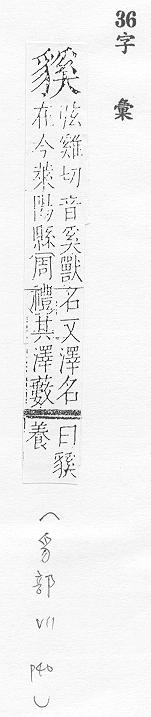 36字彙
貕
弦雞切音奚獸名又澤名
在今萊陽縣周禮其澤藪
曰貕
養
(豸部 VII P40)